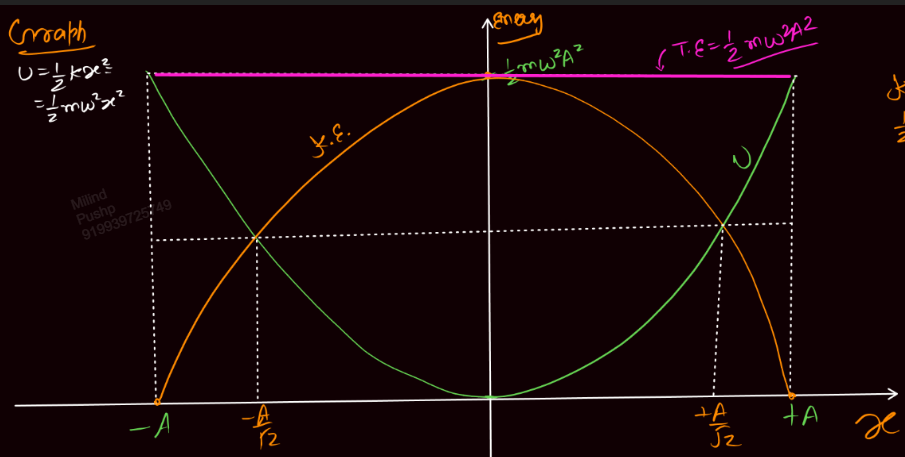 Graph
U = 1/2 kx²
= 1/2 mω²x²
Energy
1/2 mω²A²
T.E = 1/2 mω²A²
K.E.
U
Milind
Pushp
919939725749
-A
-A/√2
+A/√2
+A
x